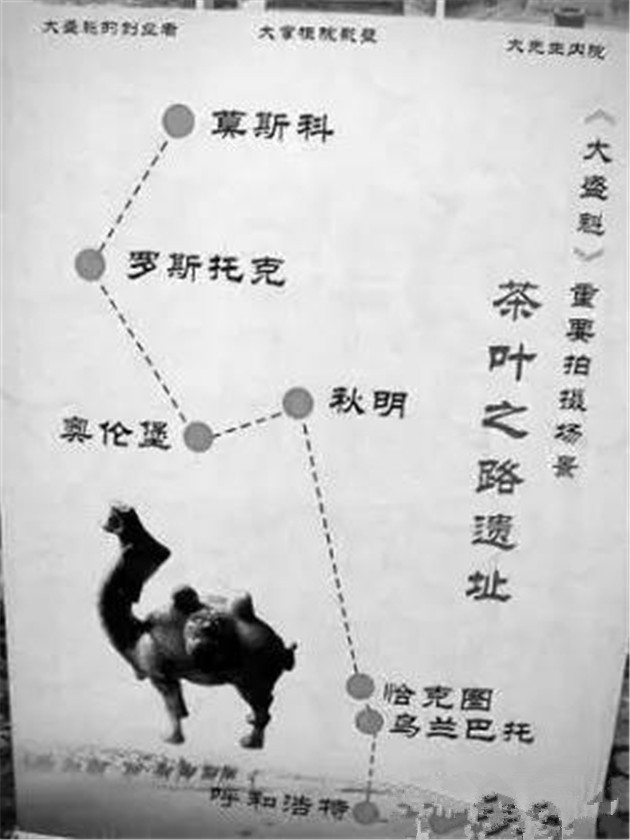 大盛魁的创业者
大掌柜院影壁
大先生内院
莫斯科
罗斯托克
奥伦堡
秋明
恰克图
乌兰巴托
呼和浩特
《大盛魁》重要拍摄场景
茶叶之路遗址